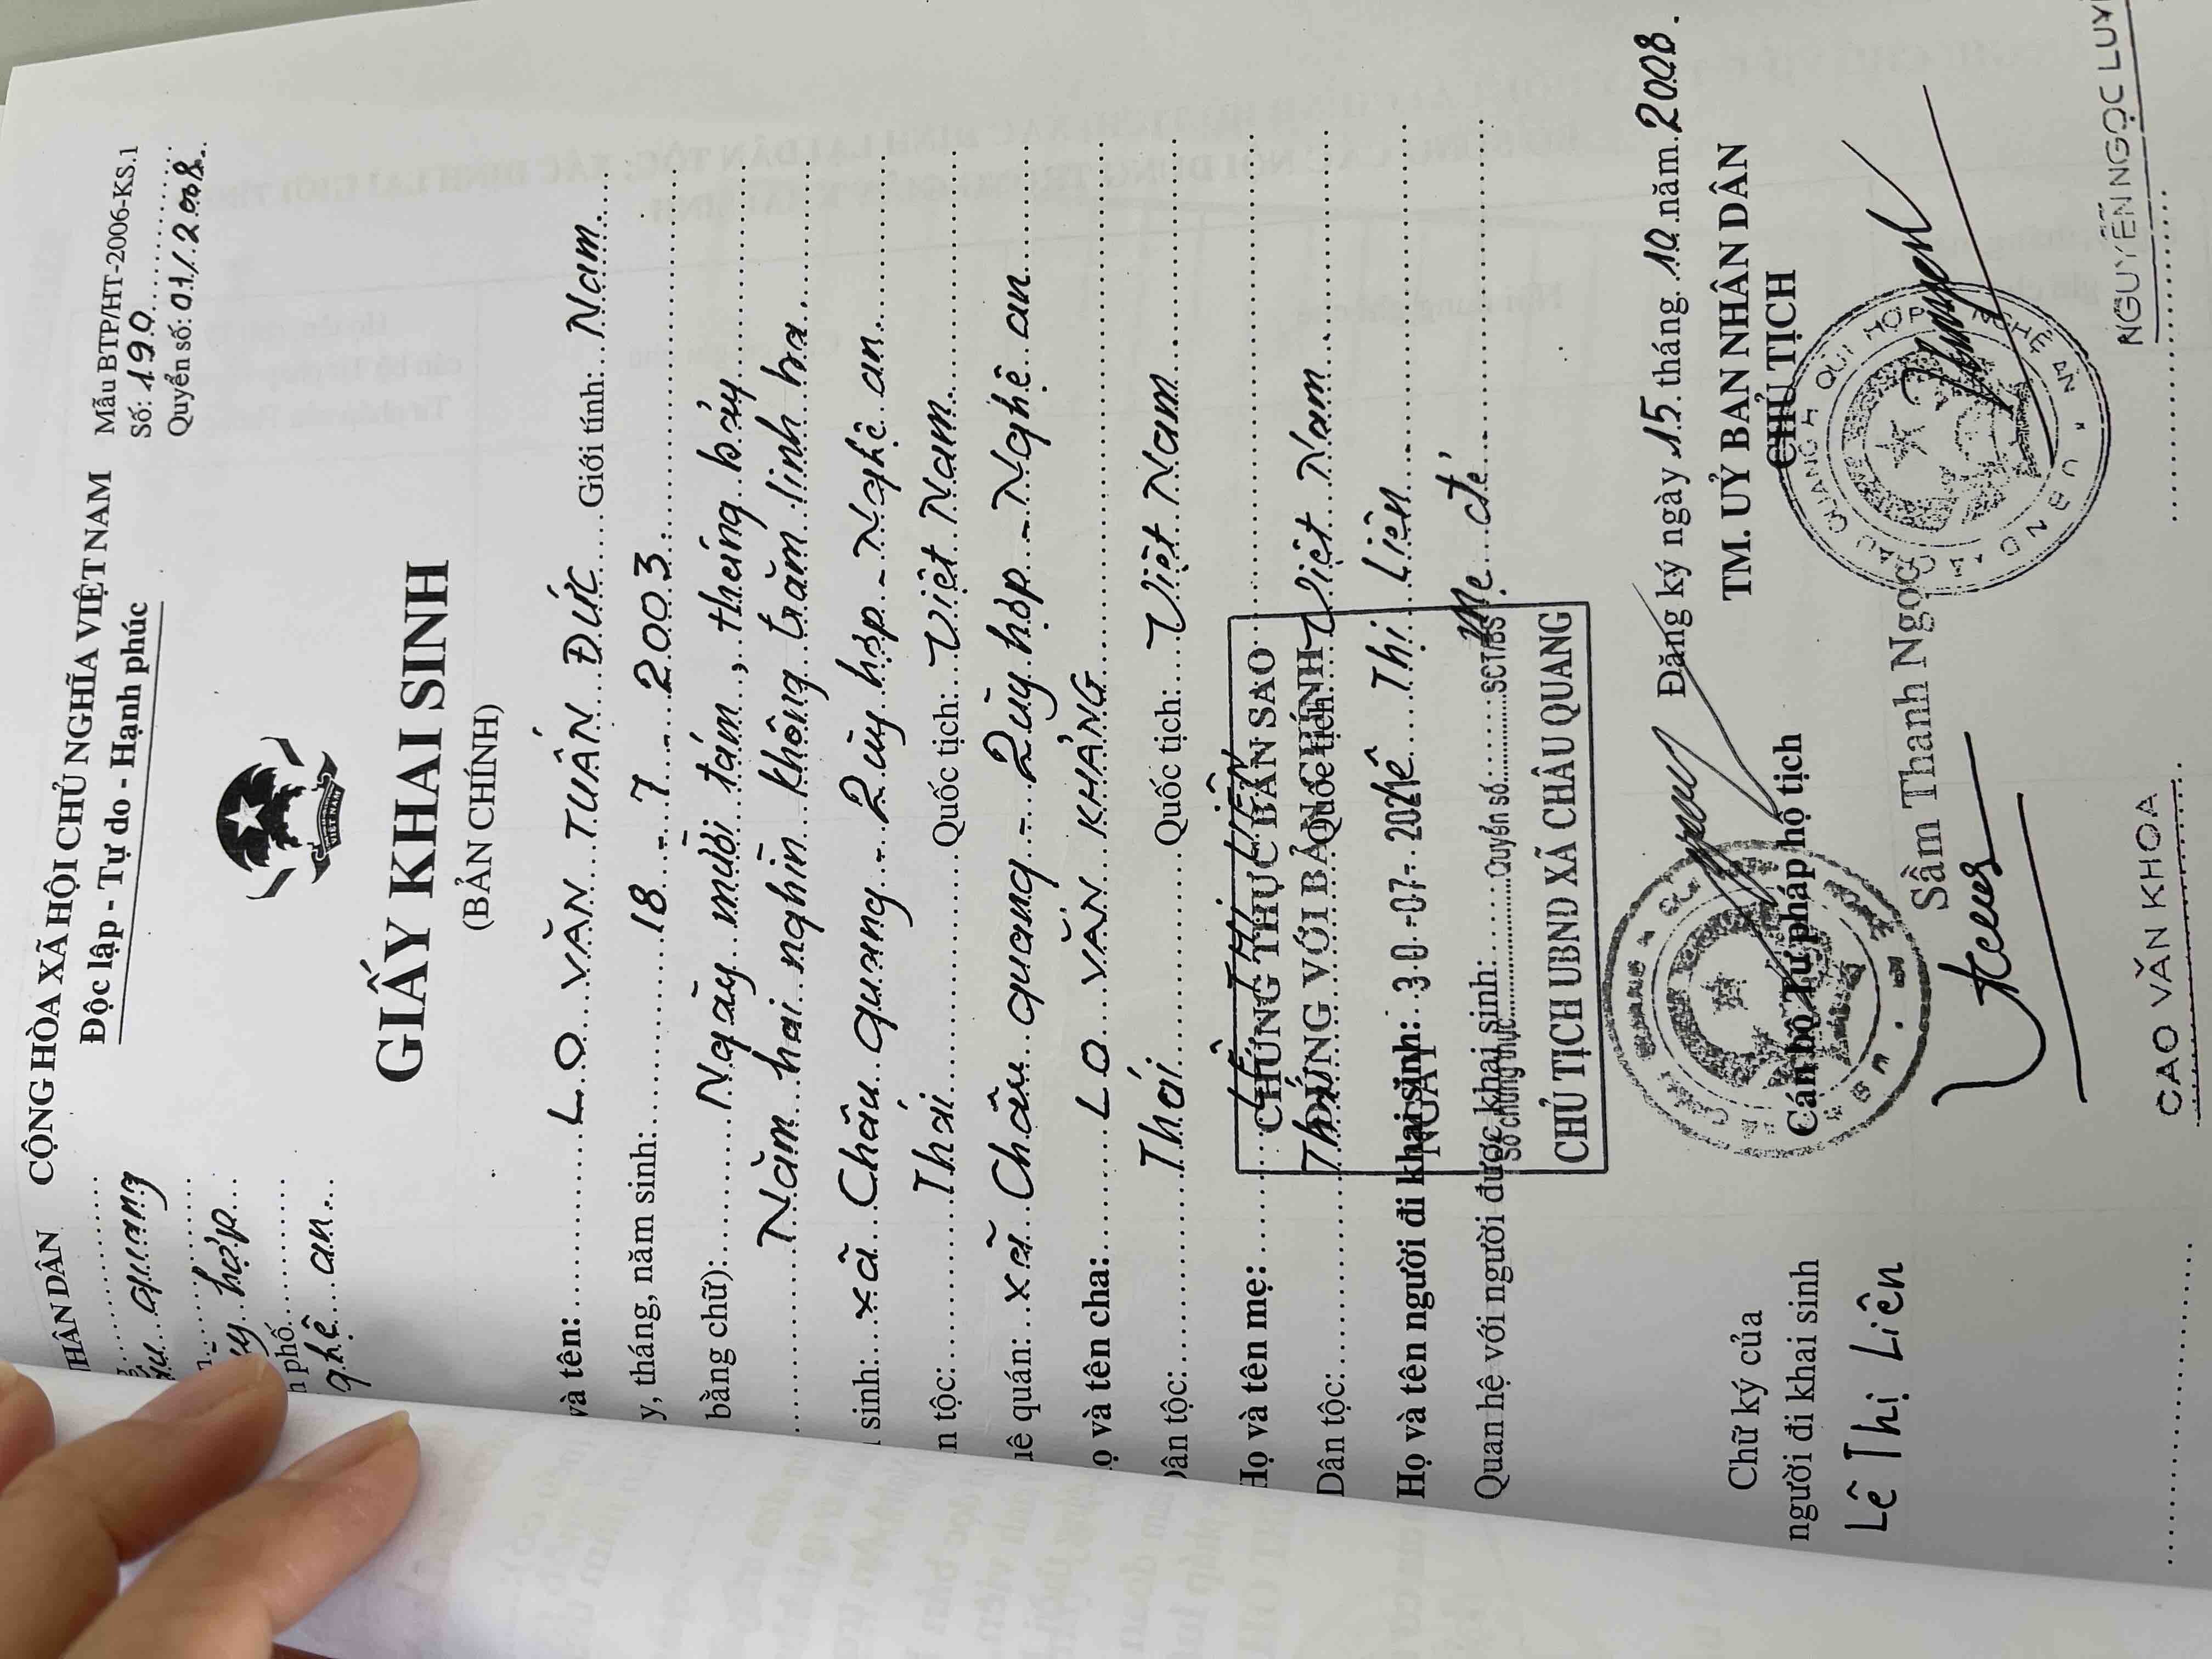 HÂN DÂN
quang
hợp
phố
ghệ an
CỘNG HÒA XÃ HỘI CHỦ NGHĨA VIỆT NAM
Độc lập - Tự do - Hạnh phúc
Mẫu BTP/HT-2006-KS.1
Số: 190
Quyển số: 01/2008
GIẤY KHAI SINH
(BẢN CHÍNH)
và tên: LO VĂN TUẤN ĐỨC Giới tính: Nam
y, tháng, năm sinh: 18 - 7 - 2003
bằng chữ): Ngày mười tám, tháng bảy
Năm hai nghìn không trăm linh ba
sinh: xã Châu quang - Quỳ hợp - Nghệ an
n tộc: Thái Quốc tịch: Việt Nam
uê quán: xã Châu quang - Quỳ hợp - Nghệ an
ọ và tên cha: LO VĂN KHẢNG
Dân tộc: Thái Quốc tịch: Việt Nam
Họ và tên mẹ: LÊ THỊ LIÊN
Dân tộc: Quốc tịch: Việt Nam
Họ và tên người đi khai sinh: Lê Thị Liên
Quan hệ với người được khai sinh: Mẹ đẻ
CHỨNG THỰC BẢN SAO
ĐÚNG VỚI BẢN CHÍNH
NGÀY 30 -07- 2021
Số chứng thực Quyển số SCT/BS
CHỦ TỊCH UBND XÃ CHÂU QUANG
Đăng ký ngày 15 tháng 10 năm 2008.
Chữ ký của
người đi khai sinh
Lê Thị Liên
Cán bộ Tư pháp hộ tịch
TM. UỶ BAN NHÂN DÂN
CHỦ TỊCH
Sầm Thanh Ngọc
CAO VĂN KHOA
NGUYỄN NGỌC LUY